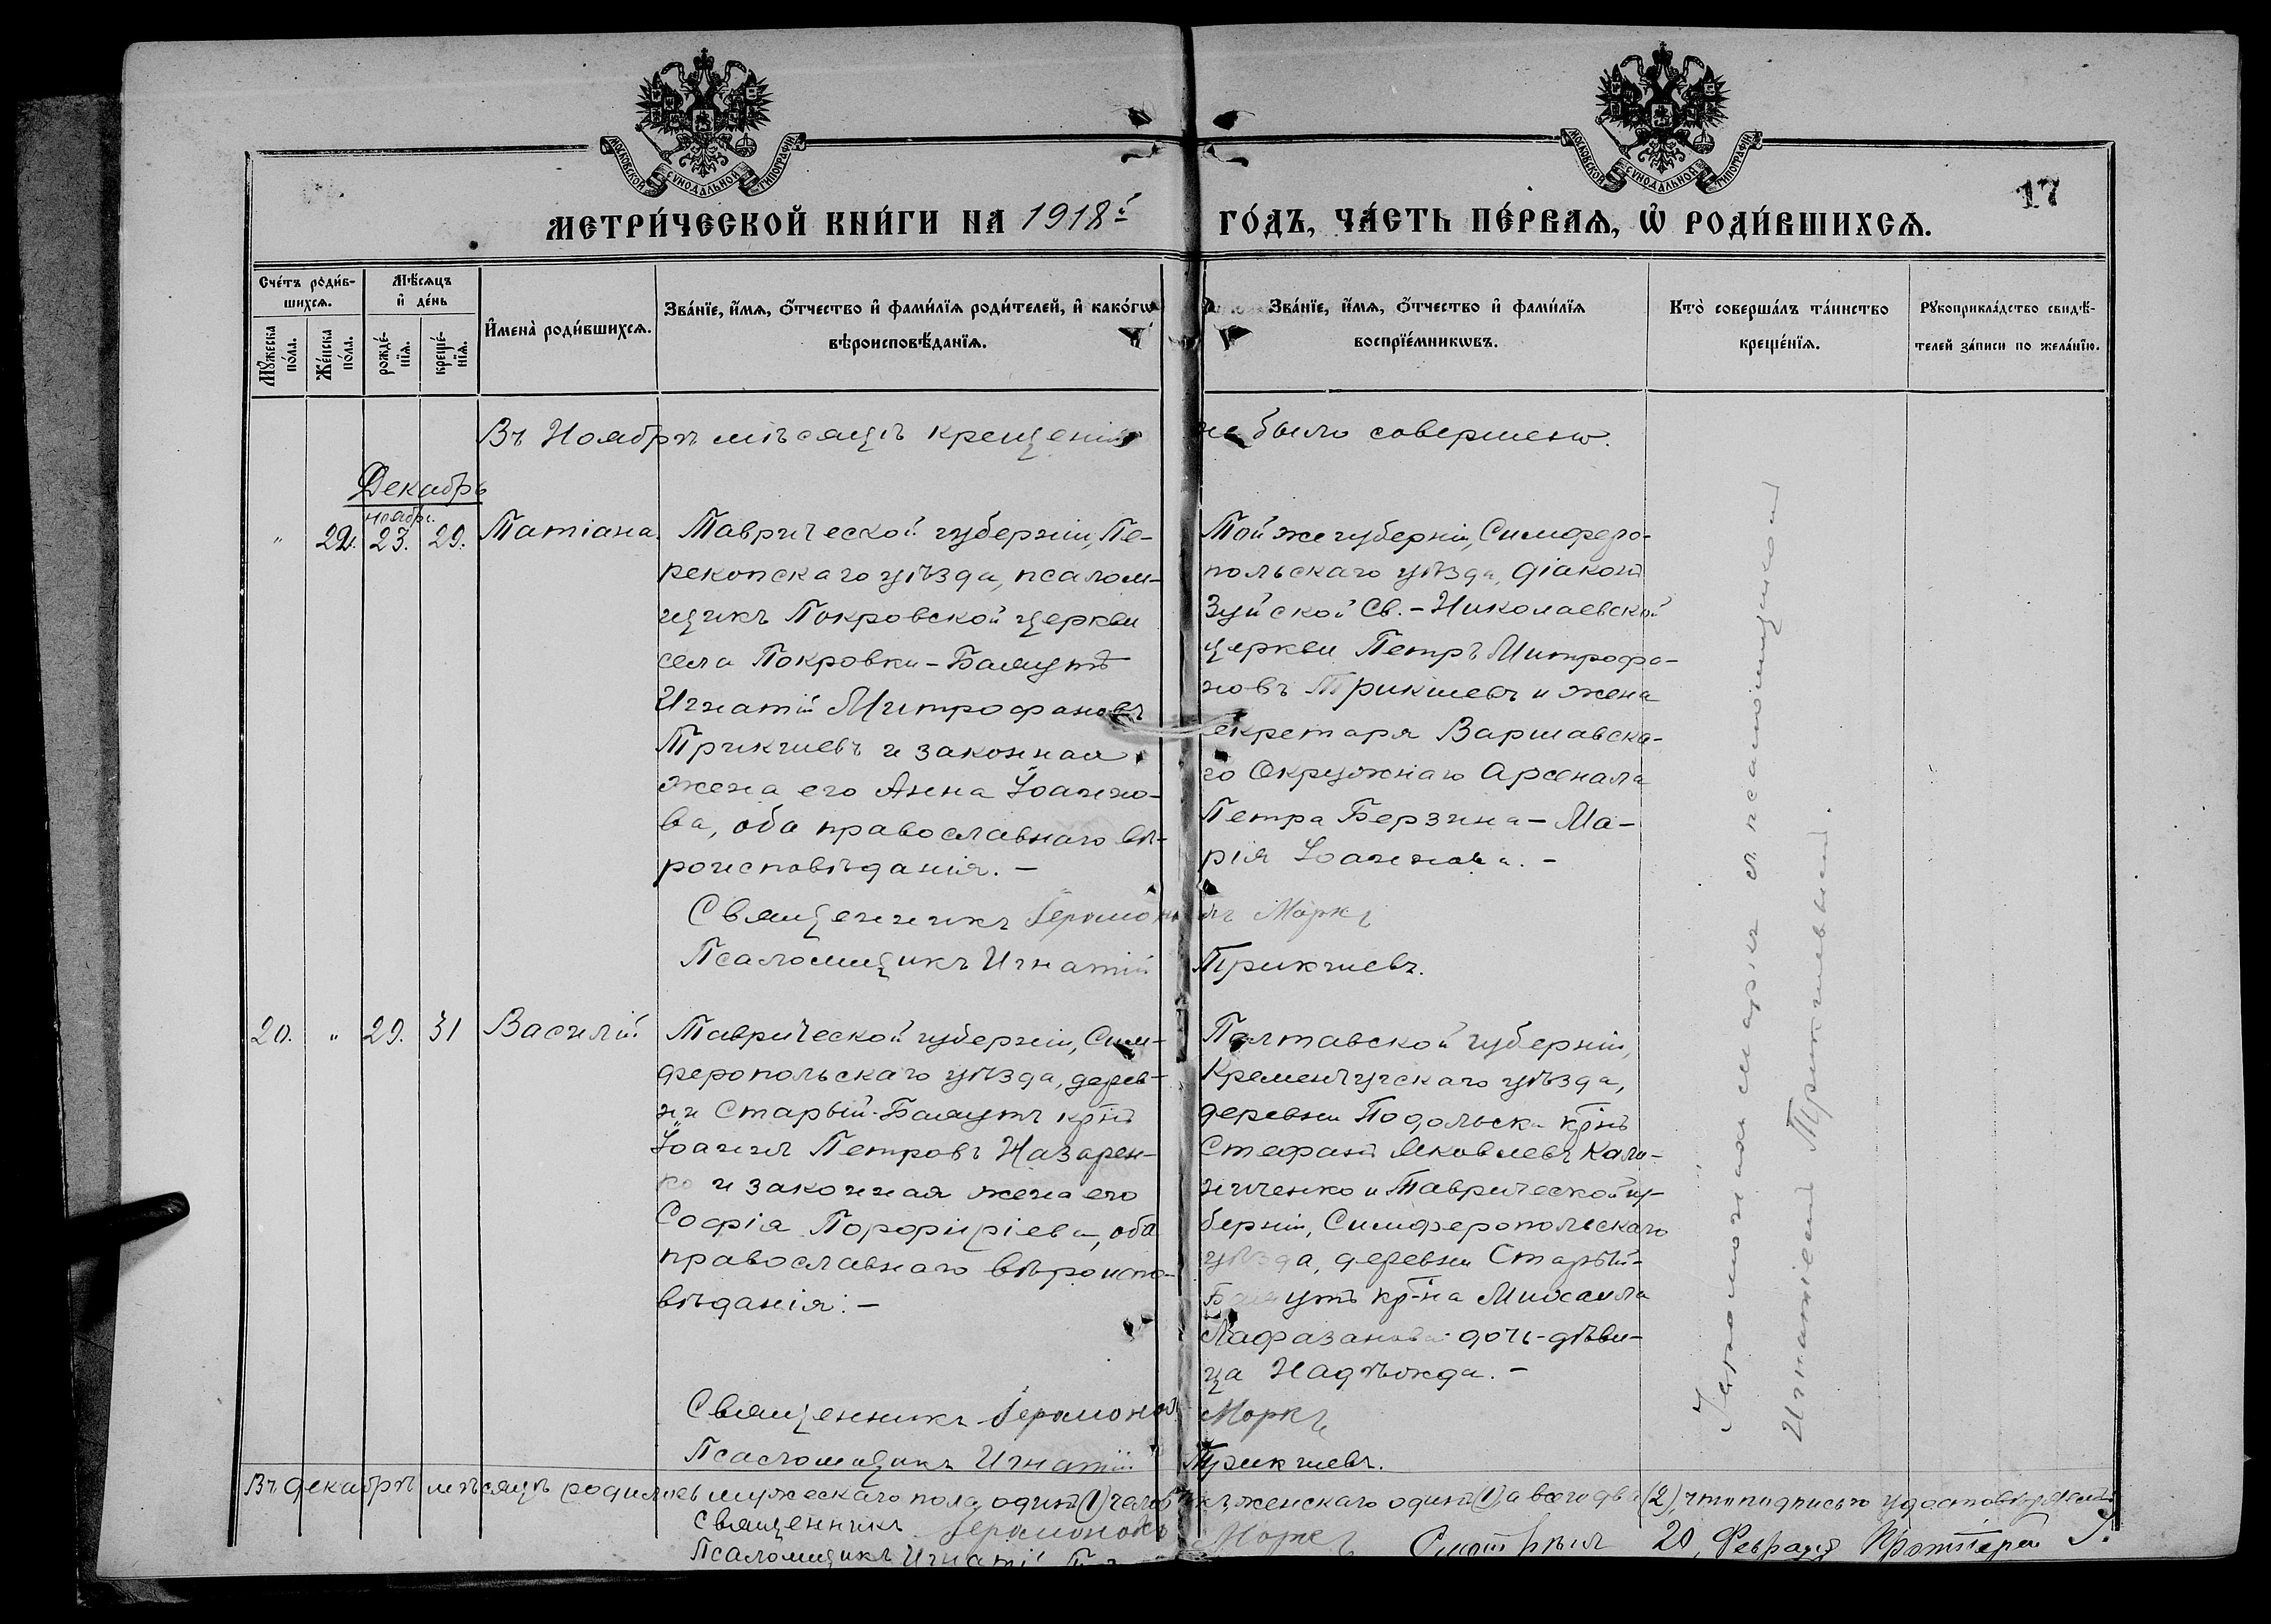 МОСКОВСКОЙ СУНОДАЛЬНОЙ ТИПОГРАФІИ
МОСКОВСКОЙ СУНОДАЛЬНОЙ ТИПОГРАФІИ
17
МЕТРИ́ЧЕСКОЙ КНИ́ГИ НА 1918й ГО́ДЪ, ЧА́СТЬ ПЕ́РВАѦ, Ѡ҆ РОДИ́ВШИХСѦ.
Сче́тъ роди́в-
шихсѧ.
Мꙋ́жеска по́ла.
Же́нска по́ла.
Мѣ́сѧцъ
и҆ де́нь
рожде́-
нїѧ.
креще́-
нїѧ.
И҆мена̀ роди́вшихсѧ.
Зва́нїе, и҆́мѧ, ѻ҆́тчество и҆ фами́лїѧ роди́телей, и҆ како́гѡ
вѣроисповѣ́данїѧ.
Зва́нїе, и҆́мѧ, ѻ҆́тчество и҆ фами́лїѧ
воспрїе́мникѡвъ.
Кто̀ соверша́лъ та́инство
креще́нїѧ.
Рꙋкоприкла́дство свидѣ́-
телей за́писи по жела́нїю.
Въ Ноябрѣ мѣсяцѣ крещенія не было совершено.
Декабрь
ноябр.
" 22. 23. 29. Татіана.
Таврической губерніи, Пе-
рекопскаго уѣзда, псалом-
щикъ Покровской церкви
села Покровки-Баяутъ
Игнатій Митрофановъ
Трикишевъ и законная
жена его Анна Іоанно-
ва, оба православнаго вѣ-
роисповѣданія. –
Той же губерніи, Симферо-
польскаго уѣзда, діаконъ
Зуйской Св.-Николаевской
церкви Петръ Митрофа-
новъ Трикишевъ и жена
секретаря Варшавска-
го Окружнаго Арсенала
Петра Берзина – Ма-
рія Іоаннова. –
Священникъ Іеромонахъ Маркъ
Псаломщикъ Игнатій Трикишевъ.
20. " 29. 31 Василій.
Таврической губерніи, Сим-
феропольскаго уѣзда, дерев-
ни Старый-Баяутъ кр-нъ
Іоаннъ Петровъ Назарен-
ко и законная жена его
Софія Порфиріева, оба
православнаго вѣроиспо-
вѣданія. –
Полтавской губерніи,
Кременчугскаго уѣзда,
деревни Подольска кр-нъ
Стефанъ Яковлевъ Кали-
ниченко и Таврической гу-
берніи, Симферопольскаго
уѣзда, деревни Старый-
Баяутъ кр-на Михаила
дочь-дѣви-
ца Надѣжда. –
Священникъ Іеромонахъ Маркъ
Псаломщикъ Игнатій Трикишевъ.
Іеромонахъ Маркъ съ псаломщикомъ
Игнатіемъ Трикишевымъ.
Въ декабрѣ мѣсяцѣ родилось мужескаго пола одинъ (1) женскаго одинъ (1), а всего два (2), что подписью удостовѣряемъ
Священникъ Іеромонахъ Маркъ
Псаломщикъ Игнатій
20, Февраля Протоіерей І.